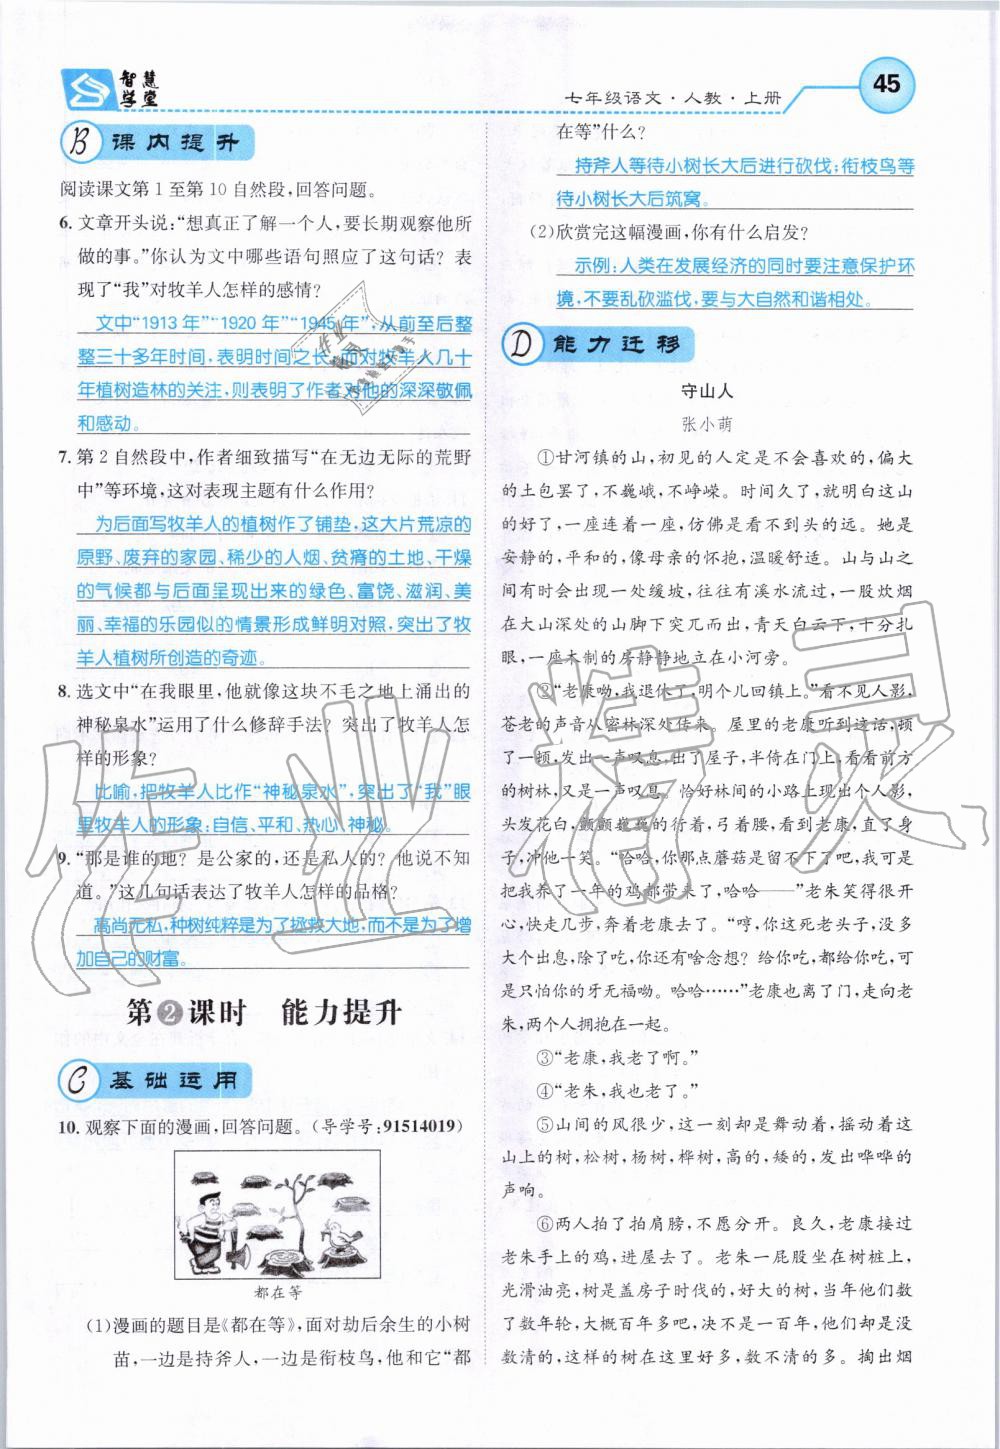 智慧学堂
七年级语文·人教·上册
45
B 课内提升
阅读课文第1至第10自然段,回答问题。
6. 文章开头说:“想真正了解一个人,要长期观察他所
做的事。”你认为文中哪些语句照应了这句话? 表
现了“我”对牧羊人怎样的感情?
文中“1913年”“1920年”“1945年”,从前至后整
整三十多年时间,表明时间之长,而对牧羊人几十
年植树造林的关注,则表明了作者对他的深深敬佩
和感动。
7. 第2自然段中,作者细致描写“在无边无际的荒野
中”等环境,这对表现主题有什么作用?
为后面写牧羊人的植树作了铺垫,这大片荒凉的
原野、废弃的家园、稀少的人烟、贫瘠的土地、干燥
的气候都与后面呈现出来的绿色、富饶、滋润、美
丽、幸福的乐园似的情景形成鲜明对照,突出了牧
羊人植树所创造的奇迹。
8. 选文中“在我眼里,他就像这块不毛之地上涌出的
神秘泉水”运用了什么修辞手法? 突出了牧羊人怎
样的形象?
比喻,把牧羊人比作“神秘泉水”,突出了“我”眼
里牧羊人的形象:自信、平和、热心、神秘。
9. “那是谁的地? 是公家的,还是私人的? 他说不知
道。”这几句话表达了牧羊人怎样的品格?
高尚无私,种树纯粹是为了拯救大地,而不是为了增
加自己的财富。
第2课时 能力提升
C 基础运用
10. 观察下面的漫画,回答问题。(导学号:91514019)
都在等
(1)漫画的题目是《都在等》,面对劫后余生的小树
苗,一边是持斧人,一边是衔枝鸟,他和它“都
在等”什么?
持斧人等待小树长大后进行砍伐;衔枝鸟等
待小树长大后筑窝。
(2)欣赏完这幅漫画,你有什么启发?
示例:人类在发展经济的同时要注意保护环
境,不要乱砍滥伐,要与大自然和谐相处。
D 能力迁移
守山人
张小萌
①甘河镇的山,初见的人定是不会喜欢的,偏大
的土包罢了,不巍峨,不峥嵘。时间久了,就明白这山
的好了,一座连着一座,仿佛是看不到头的远。她是
安静的,平和的,像母亲的怀抱,温暖舒适。山与山之
间有时会出现一处缓坡,往往有溪水流过,一股炊烟
在大山深处的山脚下突兀而出,青天白云下,十分扎
眼,一座木制的房静静地立在小河旁。
②“老康呦,我退休了,明个儿回镇上。”看不见人影,
苍老的声音从密林深处传来。屋里的老康听到这话,顿
了顿,发出一声叹息,出了屋子,半倚在门框上,看看前方
的树林,又是一声叹息。恰好林间的小路上现出个人影,
头发花白,颤颤巍巍的行着,弓着腰,看到老康,直了身
子,冲他一笑。“哈哈,你那点蘑菇是留不下了吧,我可是
把我养了一年的鸡都带来了,哈哈——”老朱笑得很开
心,快走几步,奔着老康去了。“哼,你这死老头子,没多
大个出息,除了吃,你还有啥念想? 给你吃,给你吃,可
是只怕你的牙无福呦。哈哈……”老康也离了门,走向老
朱,两个人拥抱在一起。
③“老康,我老了啊。”
④“老朱,我也老了。”
⑤山间的风很少,这一刻却是舞动着,摇动着这
山上的树,松树,杨树,桦树,高的,矮的,发出着哗哗的
声响。
⑥两人拍了拍肩膀,不愿分开。良久,老康接过
老朱手上的鸡,进屋去了。老朱一屁股坐在树桩上,
光滑油亮,树是盖房子时砍的,好大的树,当年他们数
了数年轮,大概有二百多年,决不是一百年,他们就没
数清的,这样的树在这里好多,数不清的多。掏出烟
作业精灵